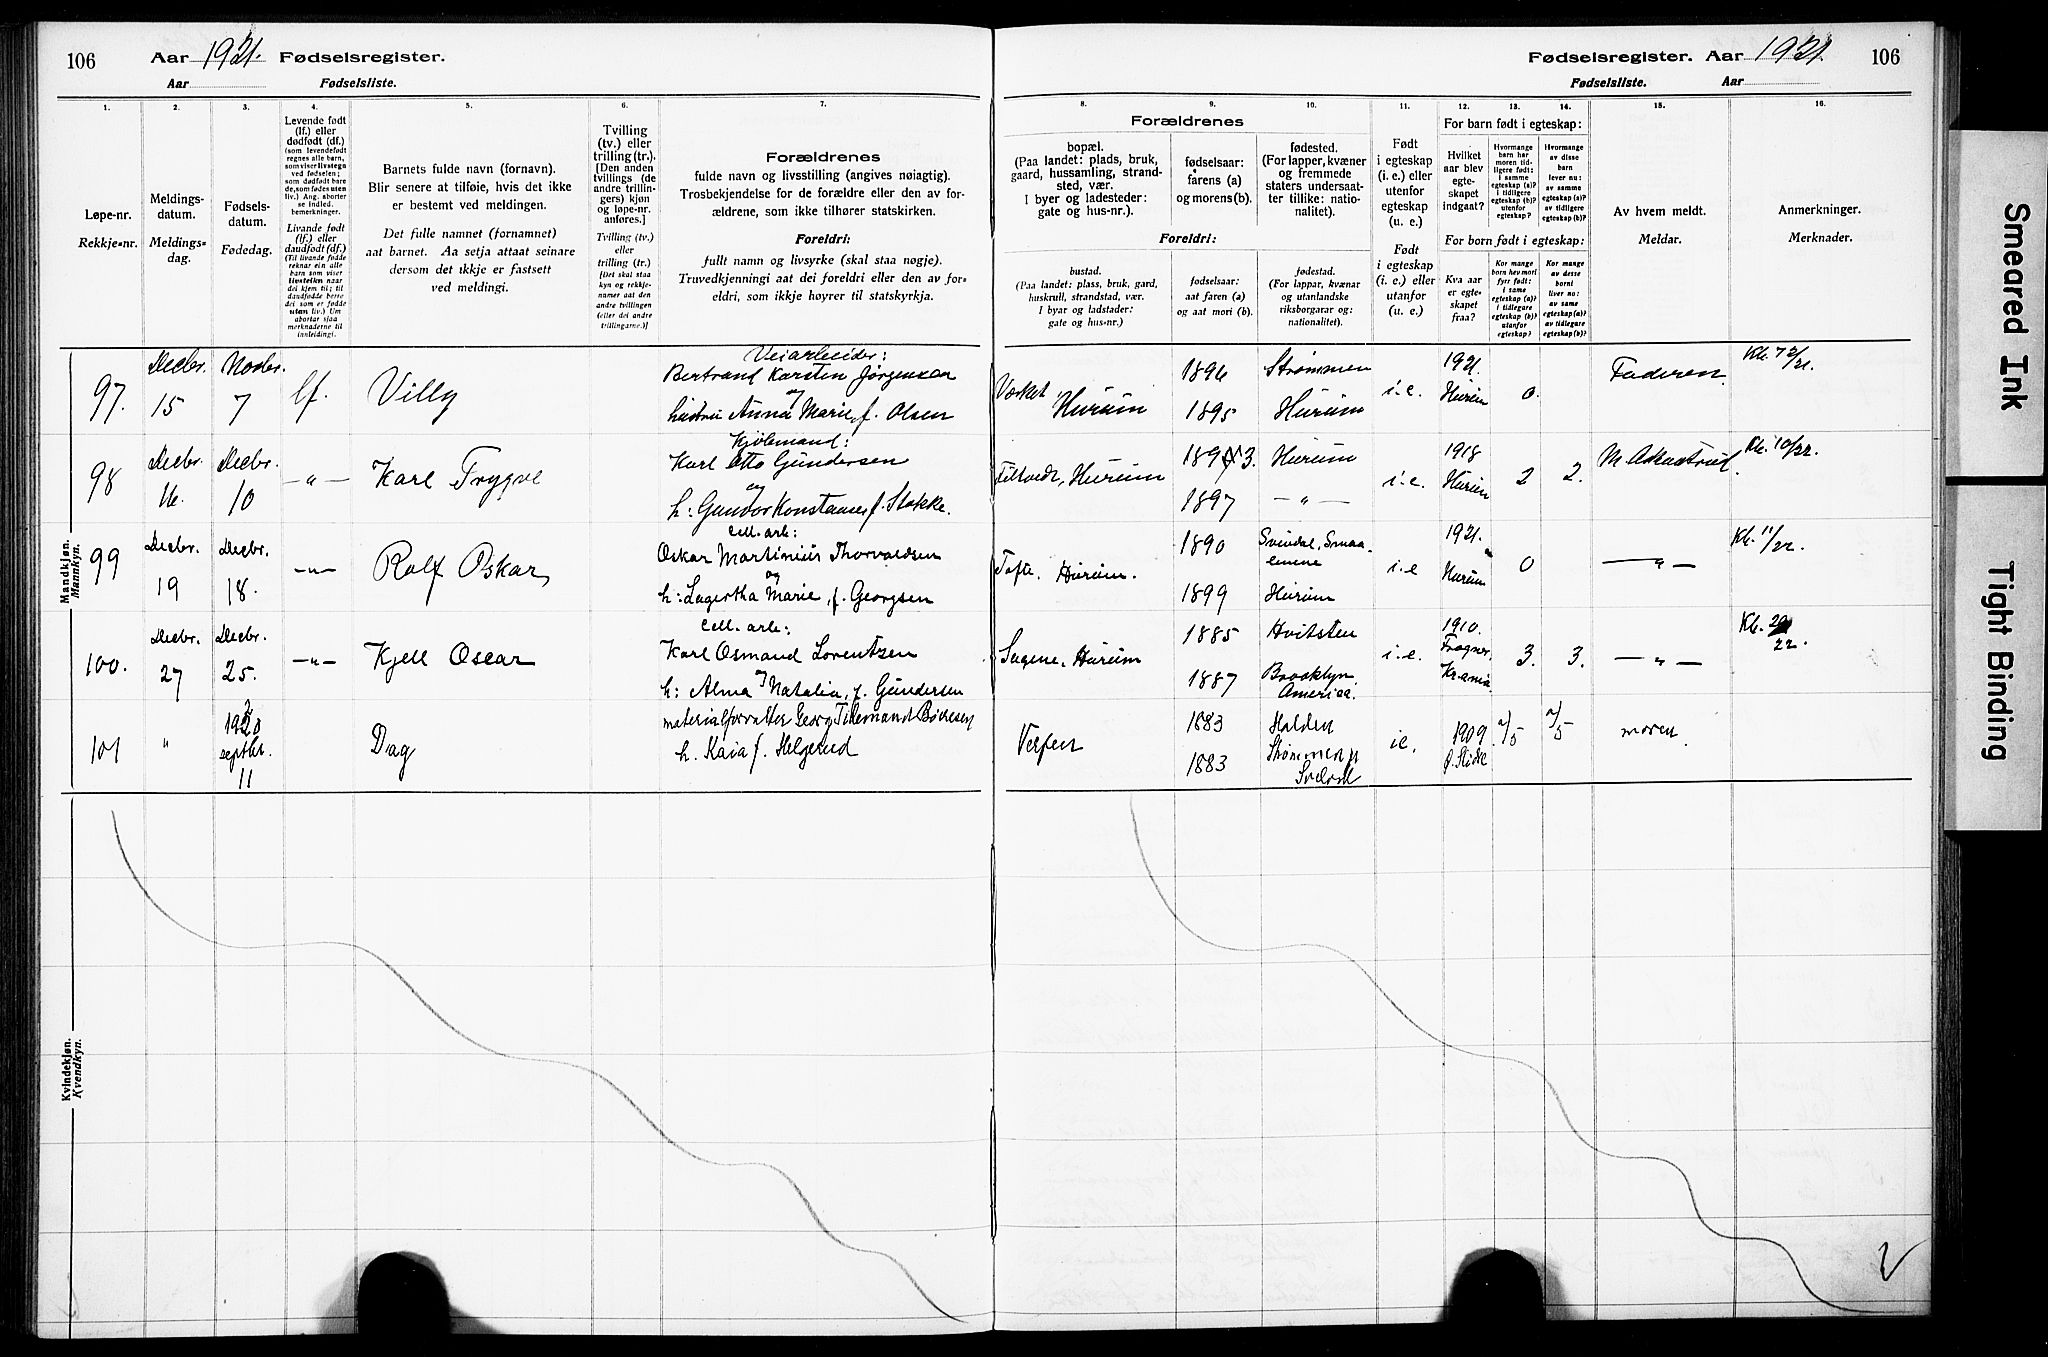 106
Aar 1921. Fødselsregister.
Aar Fødselsliste.
1.
2.
3.
4.
5.
6.
7.
Løpe-nr.
Rekkje-nr.
Meldings-
datum.
Meldings-
dag.
Fødsels-
datum.
Fødedag.
Levende født
(lf.) eller
dødfødt (df.)
(som levendefødt
regnes alle barn,
som viser livstegn
ved fødselen;
som dødfødt bare
de, som fødes uten
liv.) Ang. aborter
se indled.
bemerkninger.
Livande født
(lf.) eller
daudfødt (df.)
(Til livande fødde
reknar ein alle
barn som viser
livsteikn naar
dei kjem til; til
daudfødde berre
dei som er fødde
utan liv.) Um
abortar sjaa
merknaderne til
innleiding).
Barnets fulde navn (fornavn).
Blir senere at tilføie, hvis det ikke
er bestemt ved meldingen.
Det fulle namnet (fornamnet)
aat barnet. Aa setja attaat seinare
dersom det ikkje er fastsett
ved meldingi.
Tvilling
(tv.) eller
trilling (tr.).
[Den anden
tvillings (de
andre trillin-
gers) kjøn
og løpe-nr.
anføres.]
Tvilling (tv.)
eller
trilling (tr.)
[Det skal staa
kyn og rekkje-
numer aat den
andre tvillingen
(eller dei andre
trillingarne.)]
Forældrenes
fulde navn og livsstilling (angives nøiagtig).
Trosbekjendelse for de forældre eller den av for-
ældrene, som ikke tilhører statskirken.
Foreldri:
fullt namn og livsyrke (skal staa nøgje).
Truvedkjenningi aat dei foreldri eller den av for-
eldri, som ikkje høyrer til statskyrkja.
Mandkjøn.
Mannkyn.
97.
Decbr.
15
Novbr.
7
lf.
Villy
Veiarbeider:
Bertrand Karsten Jørgensen
og
hustru Anna Marie, f. Olsen
98
Decbr.
16.
Decbr.
10
— " —
Karl Trygve
Karl Otto Gundersen
og
h: Gundor Konstanse, f. Stokke.
99
Decbr.
19
Decbr.
18.
— " —
Rolf Oskar
Cell. arb:
Oskar Martinius Thorvaldsen
og
h: Lagertha Marie, f. Georgsen
100.
Decbr.
27
Decbr.
25.
— " —
Kjell Oscar
Cell. arb:
Karl Osmand Lorentzen
og
h: Alma Natalia, f. Gundersen
101
"
septbr.
11
Dag
materialforvalter Georg Tidemand Bødtesen
h. Kaia f. Helgerud
Kvindekjøn.
Kvendkyn.
Fødselsregister. Aar 1921. 106
Fødselsliste. Aar
8.
9.
10.
11.
12.
13.
14.
15.
16.
Forældrenes
bopæl.
(Paa landet: plads, bruk,
gaard, hussamling, strand-
sted, vær.
I byer og ladesteder:
gate og hus-nr.).
fødselsaar:
farens (a)
og morens (b).
fødested.
(For lapper, kvæner
og fremmede
staters undersaat-
ter tillike: natio-
nalitet).
Foreldri:
bustad.
(Paa landet: plass, bruk, gard,
huskrull, strandstad, vær.
I byar og ladstader:
gate og hus-nr.)
fødselsaar:
aat faren (a)
og aat mori (b).
fødestad.
(For lappar, kvænar
og utanlandske
riksborgarar og:
nationalitet).
Født
i egteskap
(i. e.) eller
utenfor
egteskap
(u. e.)
Født
i egteskap
(i. e.) eller
utanfor
(u. e.)
For barn født i egteskap:
Hvilket
aar blev
egte-
skapet
indgaat?
Hvormange
barn har
moren tid-
ligere født:
i samme
egteskap (a)?
i tidligere
egteskap (b)?
utenfor
egteskap?
Hvormange
av disse
barn
lever nu:
av samme
egteskap (a)?
av tidligere
egteskap (b)?
For born født i egteskap:
Kva aar
er egte-
skapet
fraa?
Kor mange
born hev mori
fyrr født:
i same
egteskap (a)?
i tidlegare
egteskap (b)?
utanfor
egteskap?
Kor mange
av desse
borni
liver no:
av same
egteskap (a)?
av tidlegare
egteskap (b)?
Av hvem meldt.
Meldar.
Anmerkninger.
Merknader.
Verket, Hurum
1896
1895
Strømmen
Hurum
i.e.
1921.
Hurum
0.
Faderen.
Filtvedt, Hurum
1897
Hurum
— " —
i.e.
1918
Hurum
2
2.
Kb. 10/22.
Tofte. Hurum.
1890
1899
Svindal, Smaa-
lenene
Hurum
i.e
1921.
Hurum
0
— " —
Kb. 11/22.
Sagene, Hurum
1885
1887
Hvitsten
Brooklyn,
America.
i.e.
1910.
Frogner,
Krania
3.
3.
— " —
Kb.
22.
1883
1883
Halden
Strømmen p
Svelvik
ie.
1909
a/5
a/5
moren.
Smeared Ink
Tight Binding